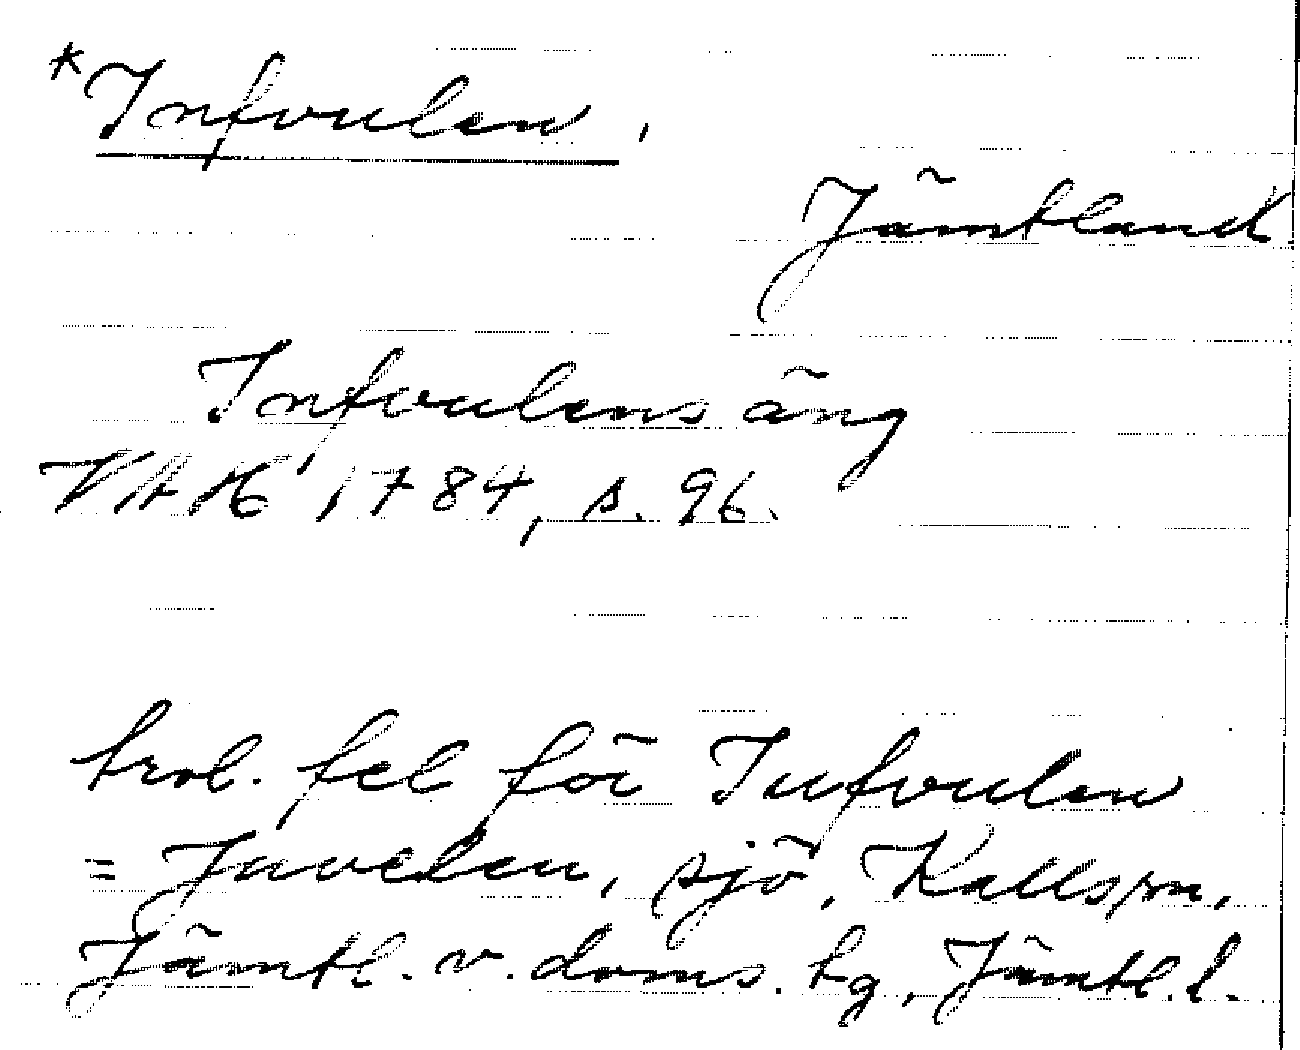 *Infoulen,
Jämtland
Infoulens äng
VAH 1784, s. 96.
trol. fel för Iufoulen
= Juvelen, sjö, Kallssn,
Jämtl. v. doms. tg, Jämtl. l.